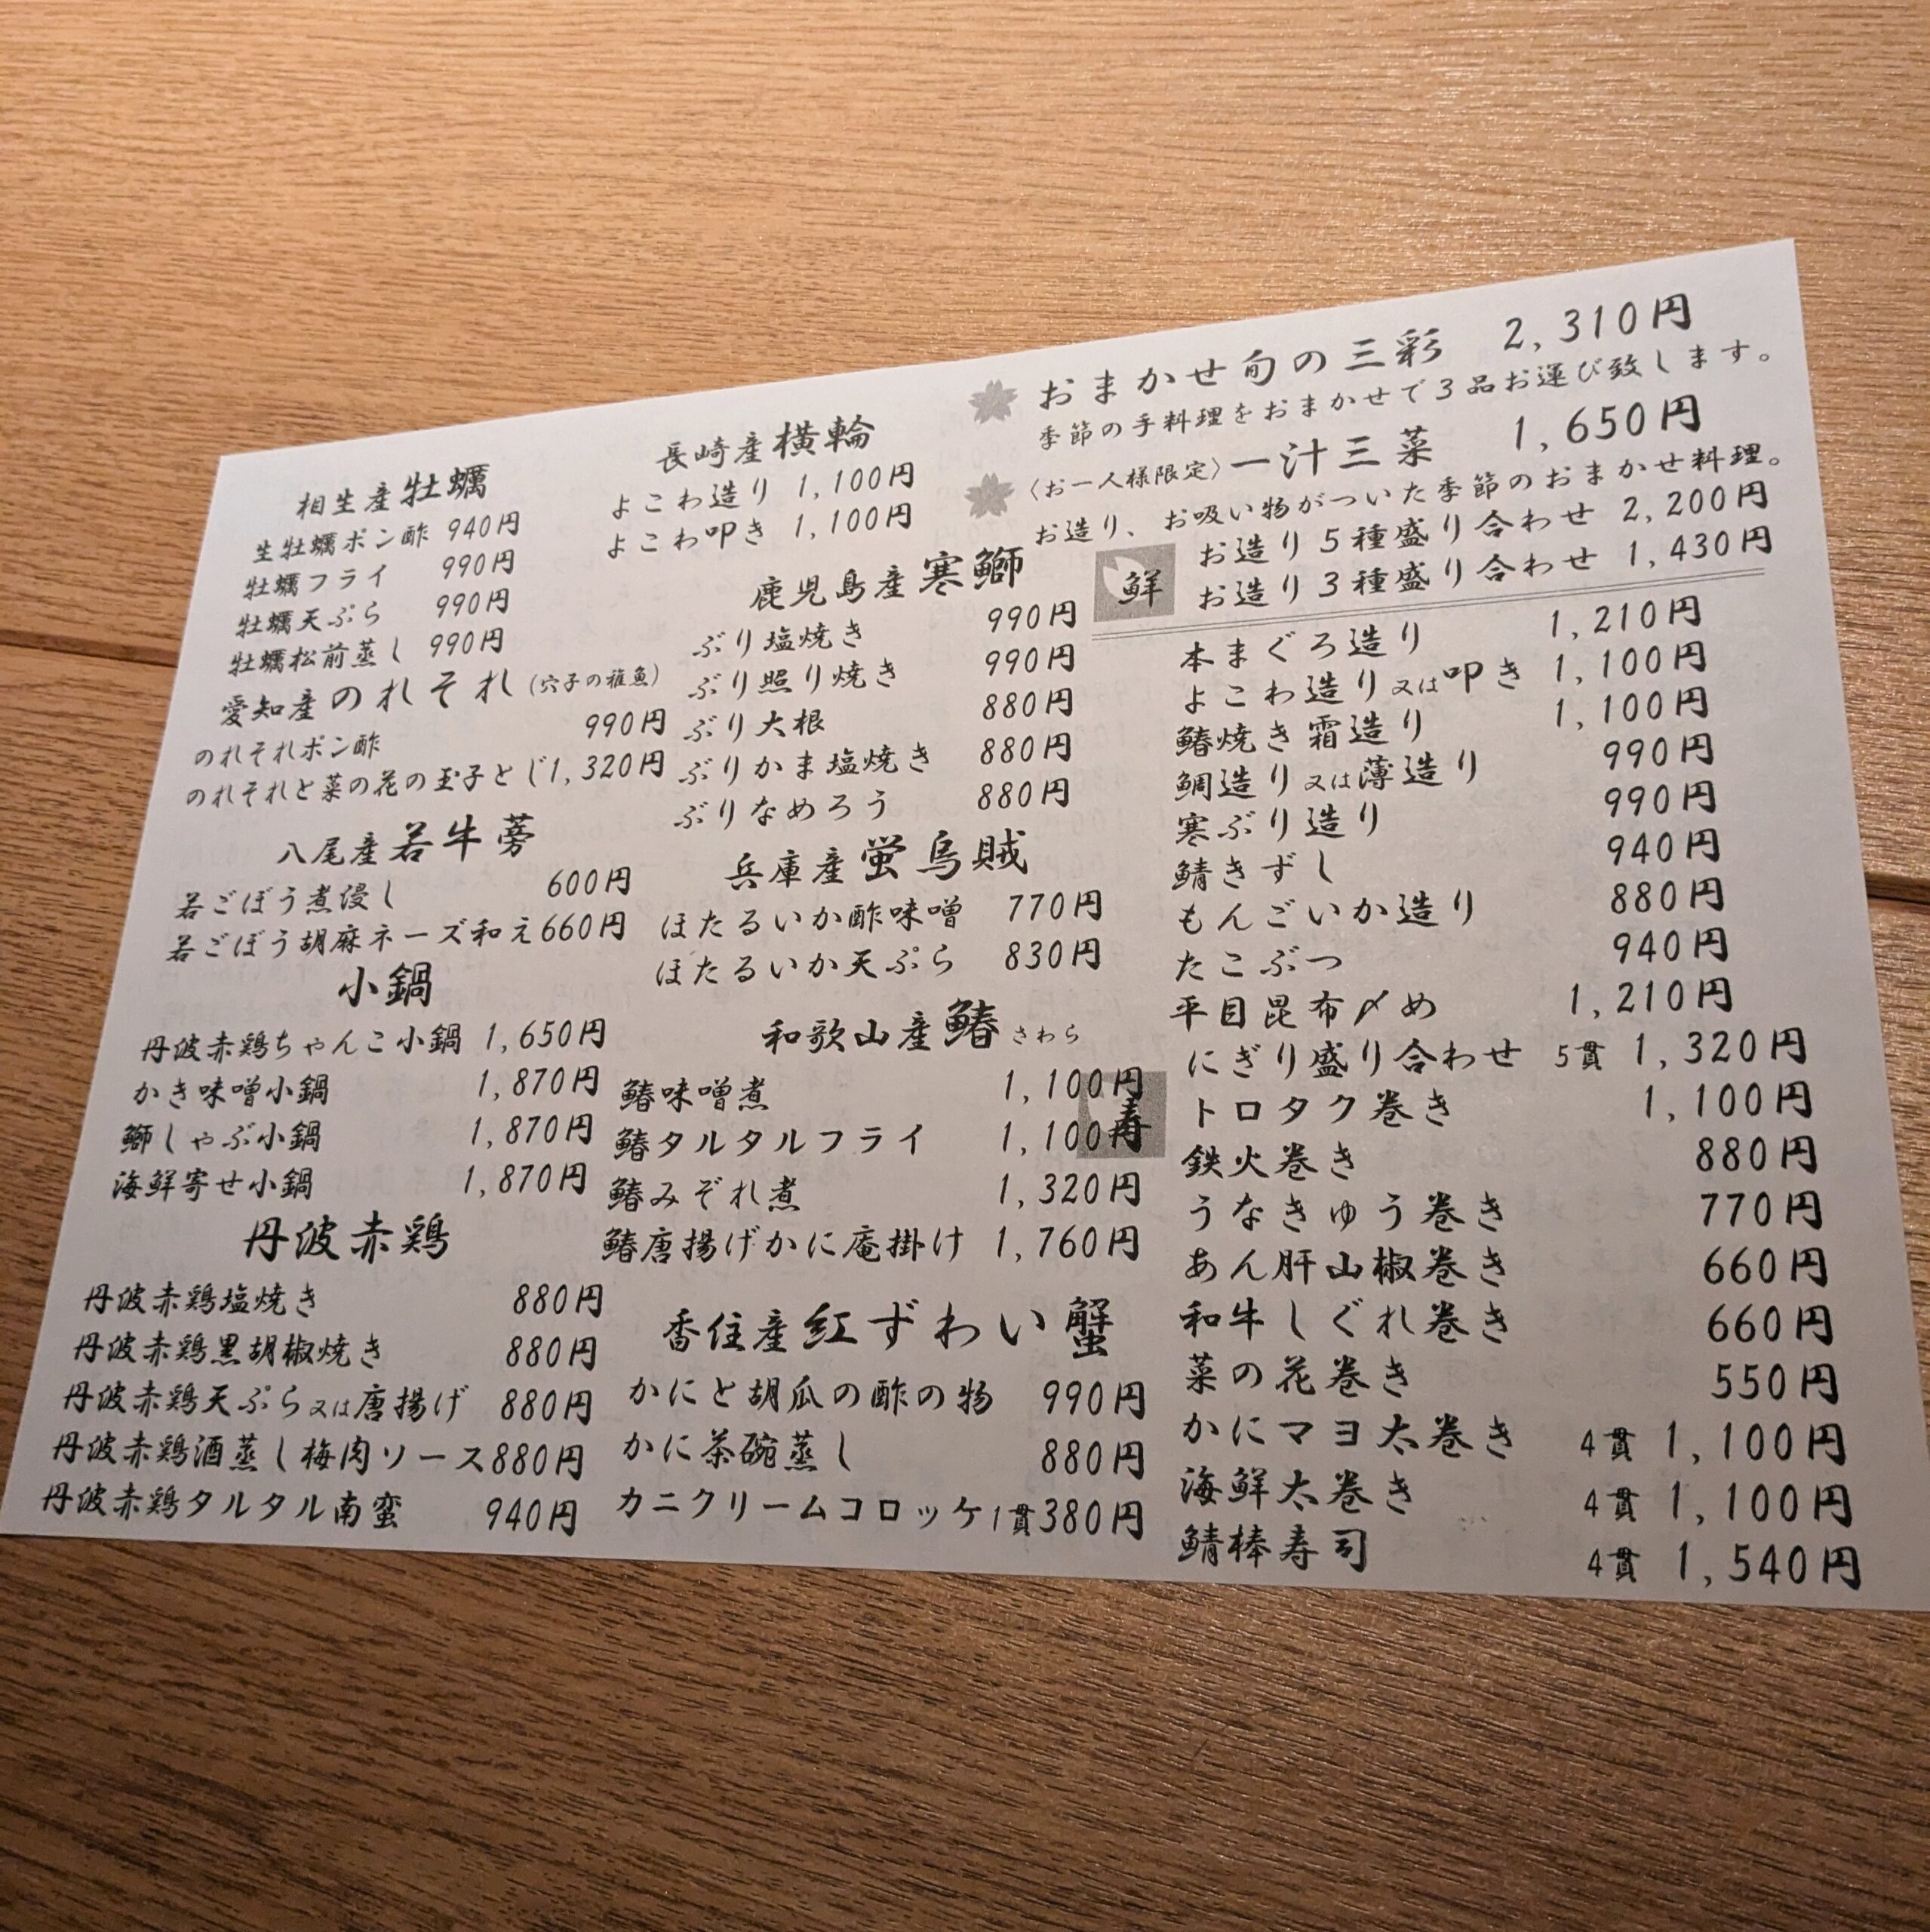 おまかせ旬の三彩 2,310円
季節の手料理をおまかせで3品お運び致します。
〈お一人様限定〉一汁三菜 1,650円
お造り、お吸い物がついた季節のおまかせ料理。
鮮
お造り5種盛り合わせ 2,200円
お造り3種盛り合わせ 1,430円
本まぐろ造り 1,210円
よこわ造り又は叩き 1,100円
鰆焼き霜造り 1,100円
鯛造り又は薄造り 990円
寒ぶり造り 990円
鯖きずし 940円
もんごいか造り 880円
たこぶつ 940円
平目昆布〆め 1,210円
寿
にぎり盛り合わせ 5貫 1,320円
トロタク巻き 1,100円
鉄火巻き 880円
うなきゅう巻き 770円
あん肝山椒巻き 660円
和牛しぐれ巻き 660円
菜の花巻き 550円
かにマヨ太巻き 4貫 1,100円
海鮮太巻き 4貫 1,100円
鯖棒寿司 4貫 1,540円
長崎産横輪
よこわ造り 1,100円
よこわ叩き 1,100円
鹿児島産寒鰤
ぶり塩焼き 990円
ぶり照り焼き 990円
ぶり大根 880円
ぶりかま塩焼き 880円
ぶりなめろう 880円
兵庫産蛍烏賊
ほたるいか酢味噌 770円
ほたるいか天ぷら 830円
和歌山産鰆さわら
鰆味噌煮 1,100円
鰆タルタルフライ 1,100円
鰆みぞれ煮 1,320円
鰆唐揚げかに庵掛け 1,760円
香住産紅ずわい蟹
かにと胡瓜の酢の物 990円
かに茶碗蒸し 880円
カニクリームコロッケ1貫380円
相生産牡蠣
生牡蠣ポン酢 940円
牡蠣フライ 990円
牡蠣天ぷら 990円
牡蠣松前蒸し 990円
愛知産のれそれ(穴子の稚魚)
のれそれポン酢 990円
のれそれと菜の花の玉子とじ1,320円
八尾産若牛蒡
若ごぼう煮浸し 600円
若ごぼう胡麻ネーズ和え660円
小鍋
丹波赤鶏ちゃんこ小鍋 1,650円
かき味噌小鍋 1,870円
鰤しゃぶ小鍋 1,870円
海鮮寄せ小鍋 1,870円
丹波赤鶏
丹波赤鶏塩焼き 880円
丹波赤鶏黒胡椒焼き 880円
丹波赤鶏天ぷら又は唐揚げ 880円
丹波赤鶏酒蒸し梅肉ソース880円
丹波赤鶏タルタル南蛮 940円